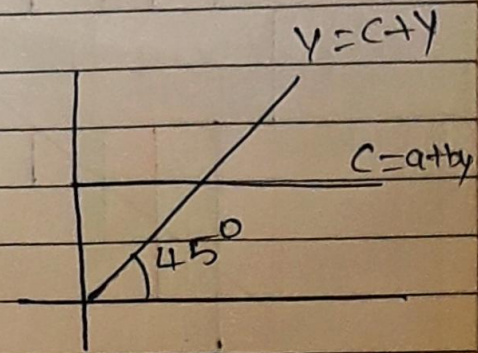 Y=C+Y
C=a+by
45°